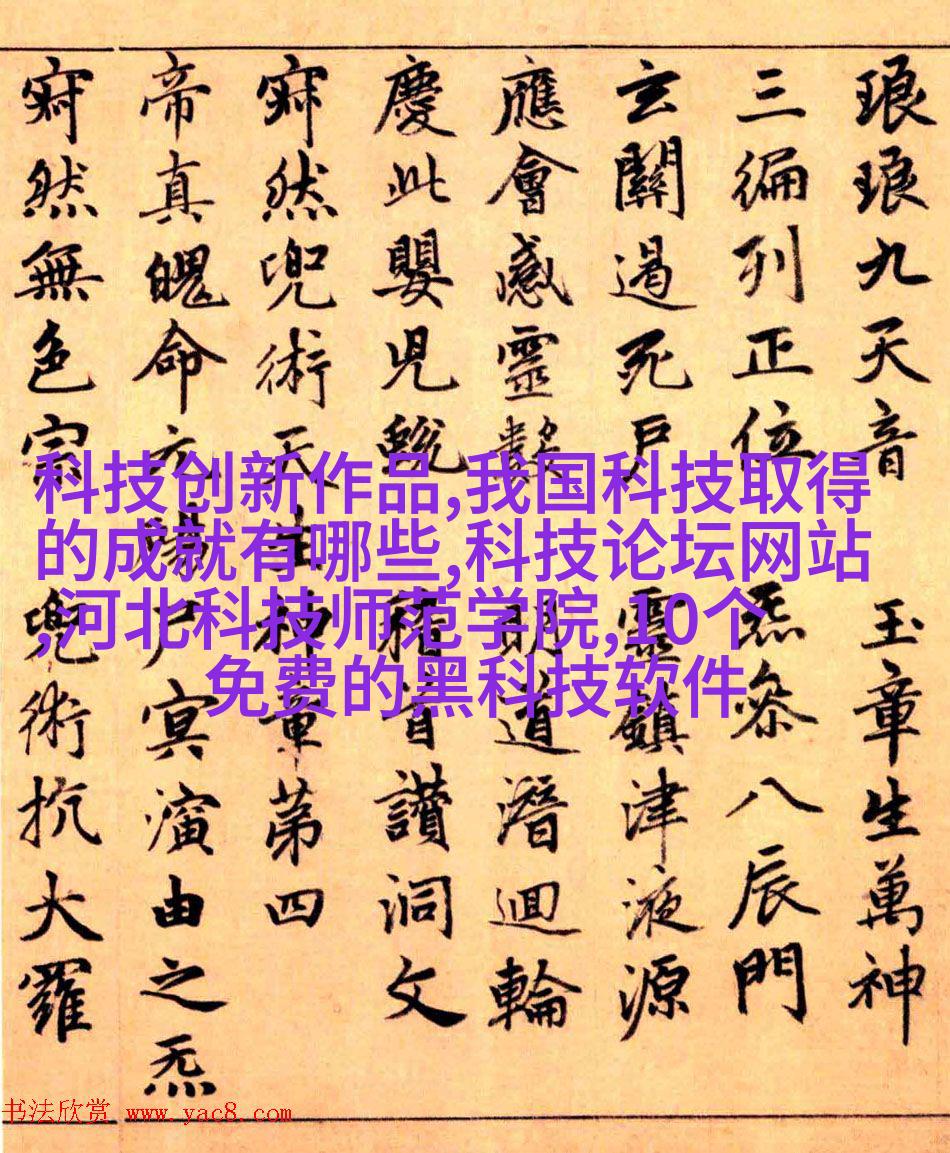 琅琅九天音 玉章生萬神
三徧列正位 炁叅八辰門
玄關遏死戶 靈鎮津液源
應會感靈數 明道潛迴輪
慶此嬰兒蛻 稽首讚洞文
寂然兜術天生神章第四
帝真魄命元陽尸冥演由之炁
寂然無色宗 兜術抗大羅
科技创新作品,我国科技取得
的成就有哪些,科技论坛网站
,河北科技师范学院,10个
免费的黑科技软件
书法欣赏 www.yac8.com